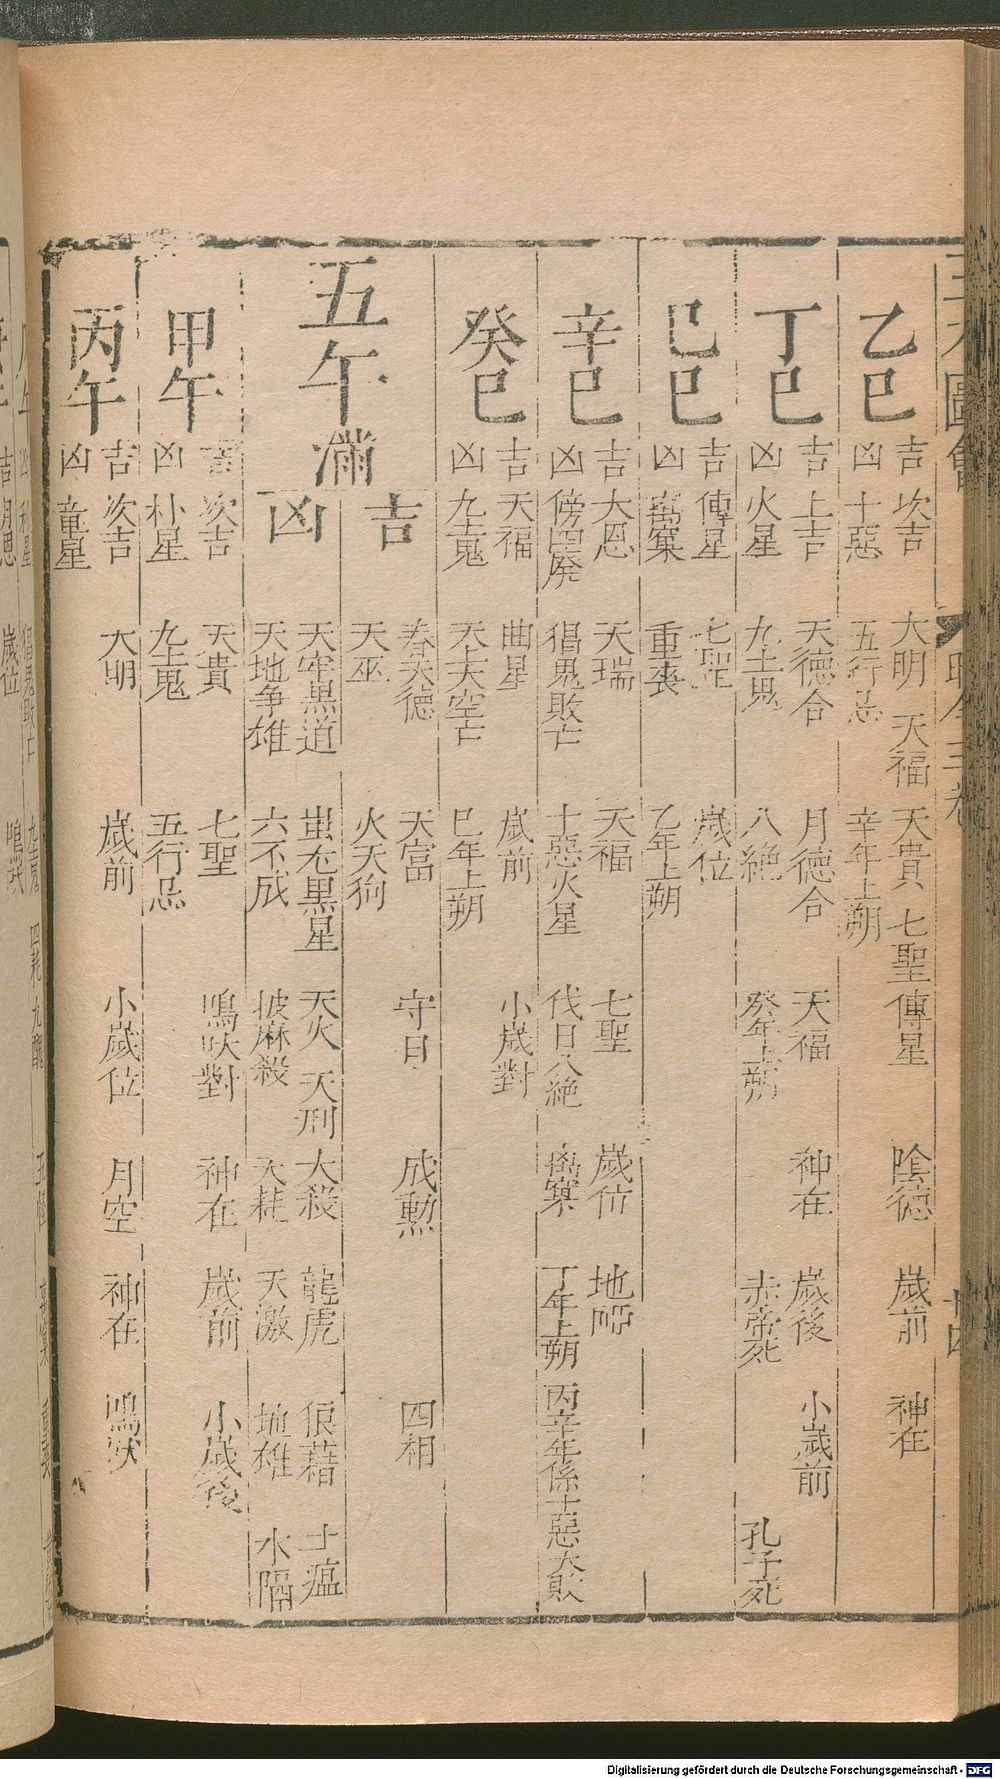 乙巳
吉 次吉 大明 天福 天貴 七聖 傳星 陰德 歲前 神在
凶 十惡 五行忌 辛年上朔
丁巳
吉 上吉 天德合 月德合 天福 神在 歲後 小歲前
凶 火星 九土鬼 八絕 癸年上朔 赤帝死 孔子死
己巳
吉 傳星 七聖 歲位
凶 重喪 乙年上朔
辛巳
吉 大恩 天瑞 天福 七聖 歲位 地啞
凶 傍四廢 猖鬼敗亡 十惡 火星 伐日 八絕 丁年上朔 丙辛年係十惡大敗
癸巳
吉 天福 曲星 歲前 小歲對
凶 九土鬼 巳年上朔
五午
滿
吉 春天德 天富 守日 成勲 四相
天巫 火天狗
凶 天牢黑道 蚩尤黑星 天火 天刑 大殺 龍虎 狼藉 土瘟
天地争雄 六不成 披麻殺 大耗 天激 地雄 水隔
甲午
吉 次吉 天貴 七聖 鳴吠對 神在 歲前 小歲後
凶 朴星 九土鬼 五行忌
丙午
吉 次吉 大明 歲前 小歲位 月空 神在 鳴吠
凶 童星
Digitalisierung gefördert durch die Deutsche Forschungsgemeinschaft - DFG